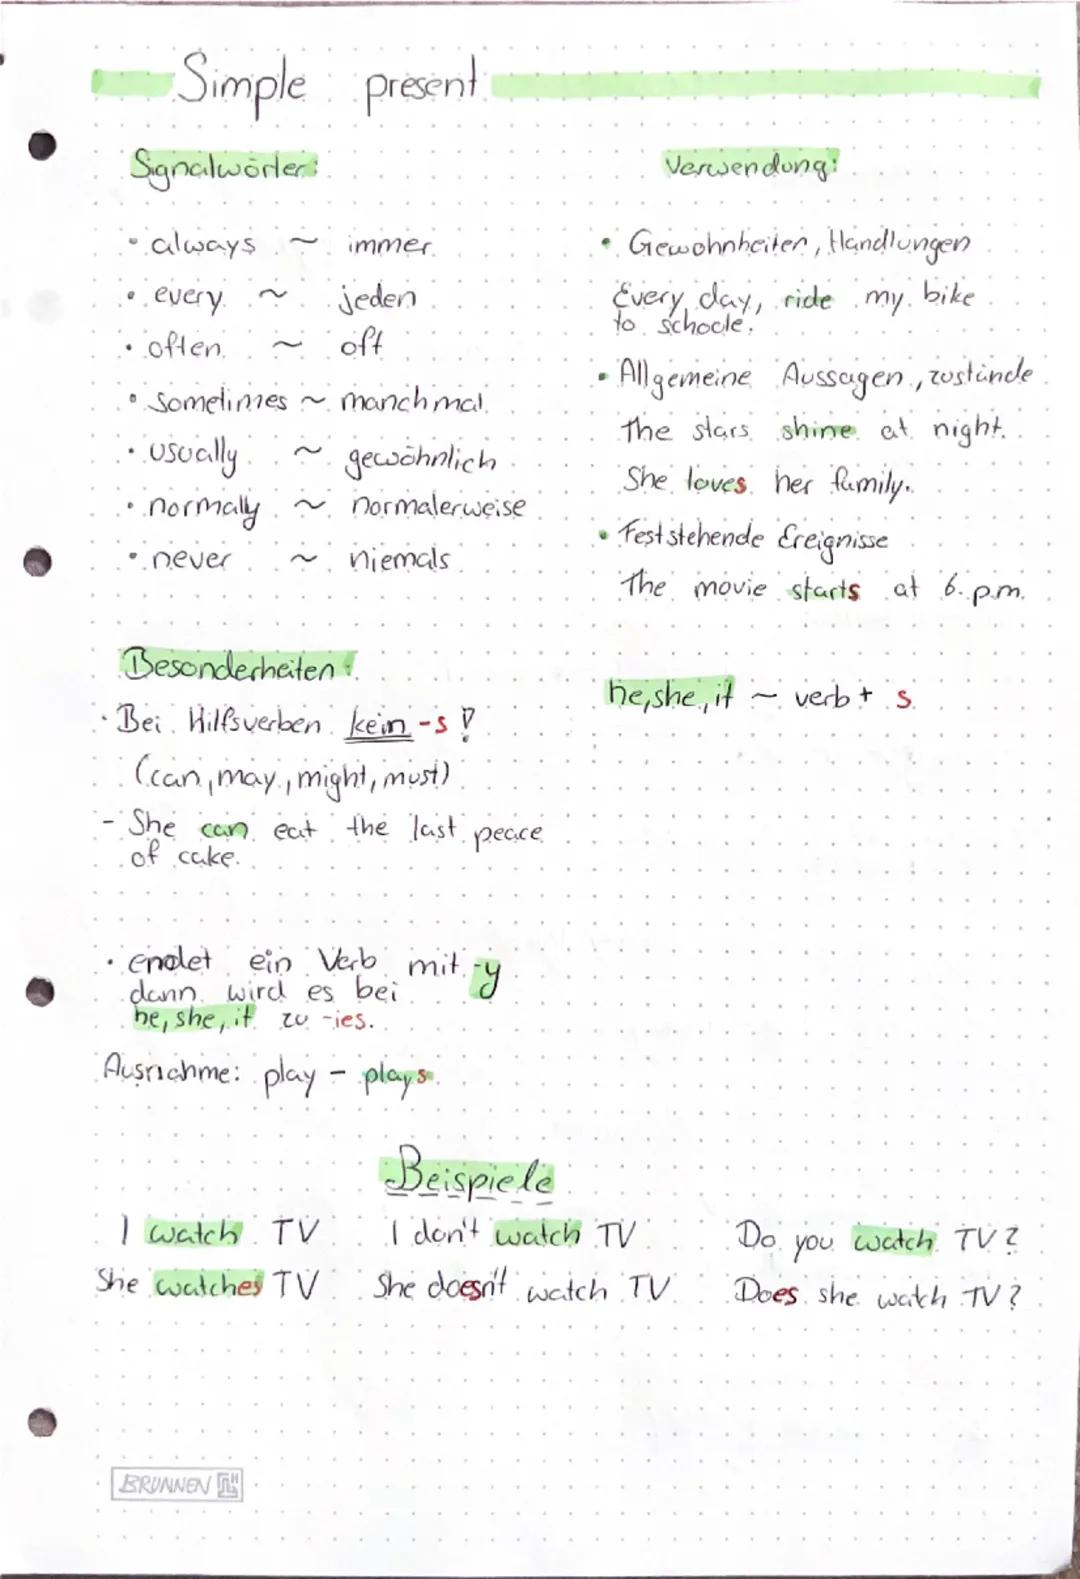 Simple present
Signalwörter:
• always ~ immer
• every ~ jeden
• often ~ oft
• sometimes ~ manchmal
• usually ~ gewöhnlich
• normally ~ normalerweise
• never ~ niemals
Verwendung:
• Gewohnheiten, Handlungen
Every day, ride my bike
to schoole.
• Allgemeine Aussagen, zustände
The stars shine at night.
She loves her family.
• Feststehende Ereignisse
The movie starts at 6. p.m.
Besonderheiten:
· Bei Hilfsverben kein -s !
(can, may, might, must)
- She can eat the last peace
of cake.
he, she, it ~ verb + s
• endet ein Verb mit -y
dann wird es bei
he, she, it zu -ies.
Ausnahme: play - plays
Beispiele
I watch TV I don't watch TV Do you watch TV?
She watches TV She doesn't watch TV Does she watch TV?
BRUNNEN